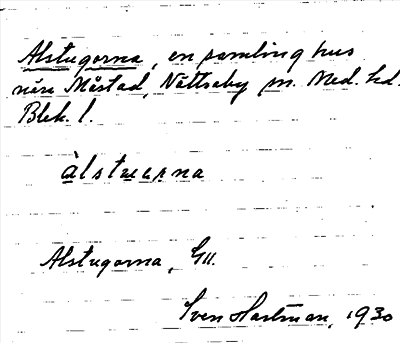 Alstugorna, en samling hus
nära Måstad, Nättraby sn. Med. hd.
Blek. l.
àlstuɯɹna
Alstugorna, GU.
Sven Hartman, 1930